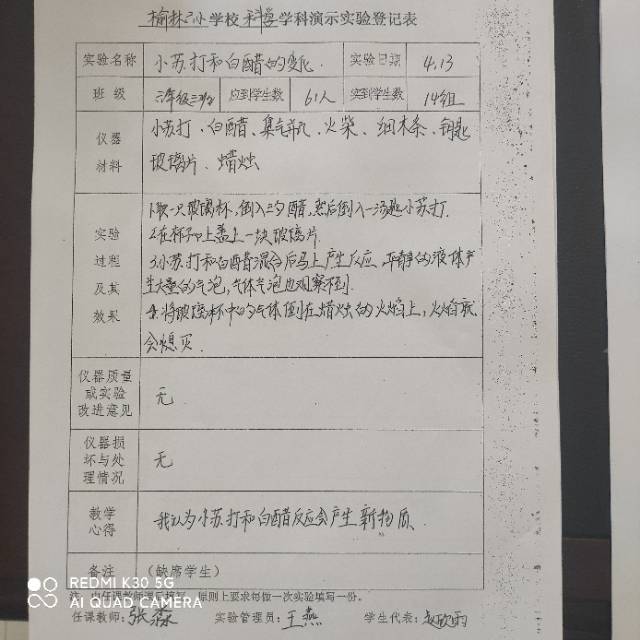 榆林三小学校科学学科演示实验登记表
实验名称 小苏打和白醋的变化. 实验日期 4.13
班级 三年级三班 应到学生数 61人 实到学生数 14组
仪器材料 小苏打、白醋、集气瓶、火柴、细木条、钥匙
玻璃片、蜡烛
实验过程及其效果 1.取一只玻璃杯,倒入三勺醋,然后倒入一汤匙小苏打.
2.在杯口上盖上一块玻璃片.
3.小苏打和白醋混合后马上产生反应 平静的液体产
生大量的气泡,气体气泡也观察不到.
4.将玻璃杯中的气体倒在蜡烛的火焰上,火焰就
会熄灭.
仪器质量或实验改进意见 无
仪器损坏与处理情况 无
教学心得 我认为小苏打和白醋反应会产生新物质.
备注 (缺席学生)
注:由任课教师演后填写,原则上要求每做一次实验填写一份。
任课教师:张淼 实验管理员:王燕 学生代表:赵欣雨
REDMI K30 5G
AI QUAD CAMERA